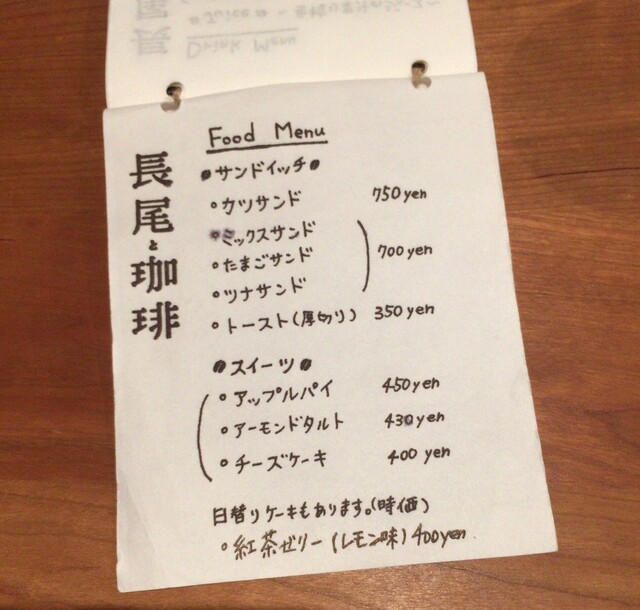 Drink Menu
長尾と珈琲
Food Menu
サンドイッチ
カツサンド 750yen
ミックスサンド
たまごサンド 700yen
ツナサンド
トースト(厚切り) 350yen
スイーツ
アップルパイ 450yen
アーモンドタルト 430yen
チーズケーキ 400yen
日替りケーキもあります。(時価)
紅茶ゼリー(レモン味)400yen